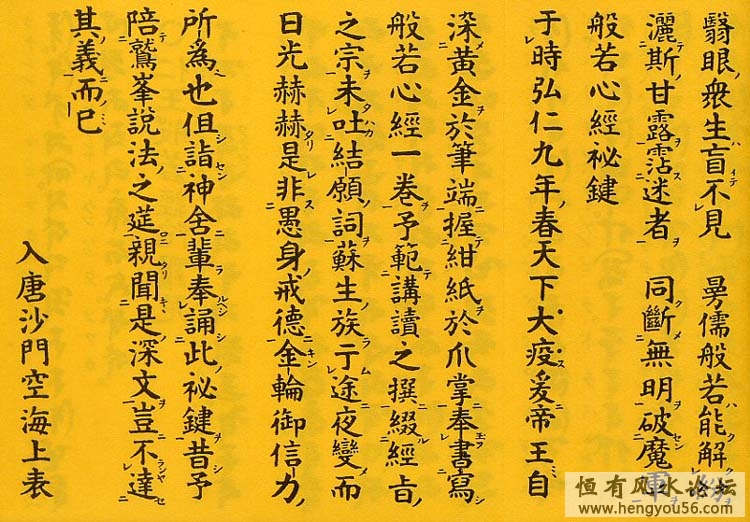 翳眼衆生盲不見　曼儒般若能解紛
灑斯甘露霑迷者　同斷無明破魔軍
般若心經祕鍵
于時弘仁九年春天下大疫爰帝王自
染黃金於筆端握紺紙於爪掌奉書寫
般若心經一卷予範講讀之撰綴經旨
之宗未吐結願詞蘇生族亍途夜變而
日光赫赫是非愚身戒德金輪御信力
所爲也但詣神舍輩奉誦此祕鍵昔予
陪鷲峯說法之莚親聞是深文豈不達
其義而已
入唐沙門空海上表
恒有风水论坛
www.hengyou56.com